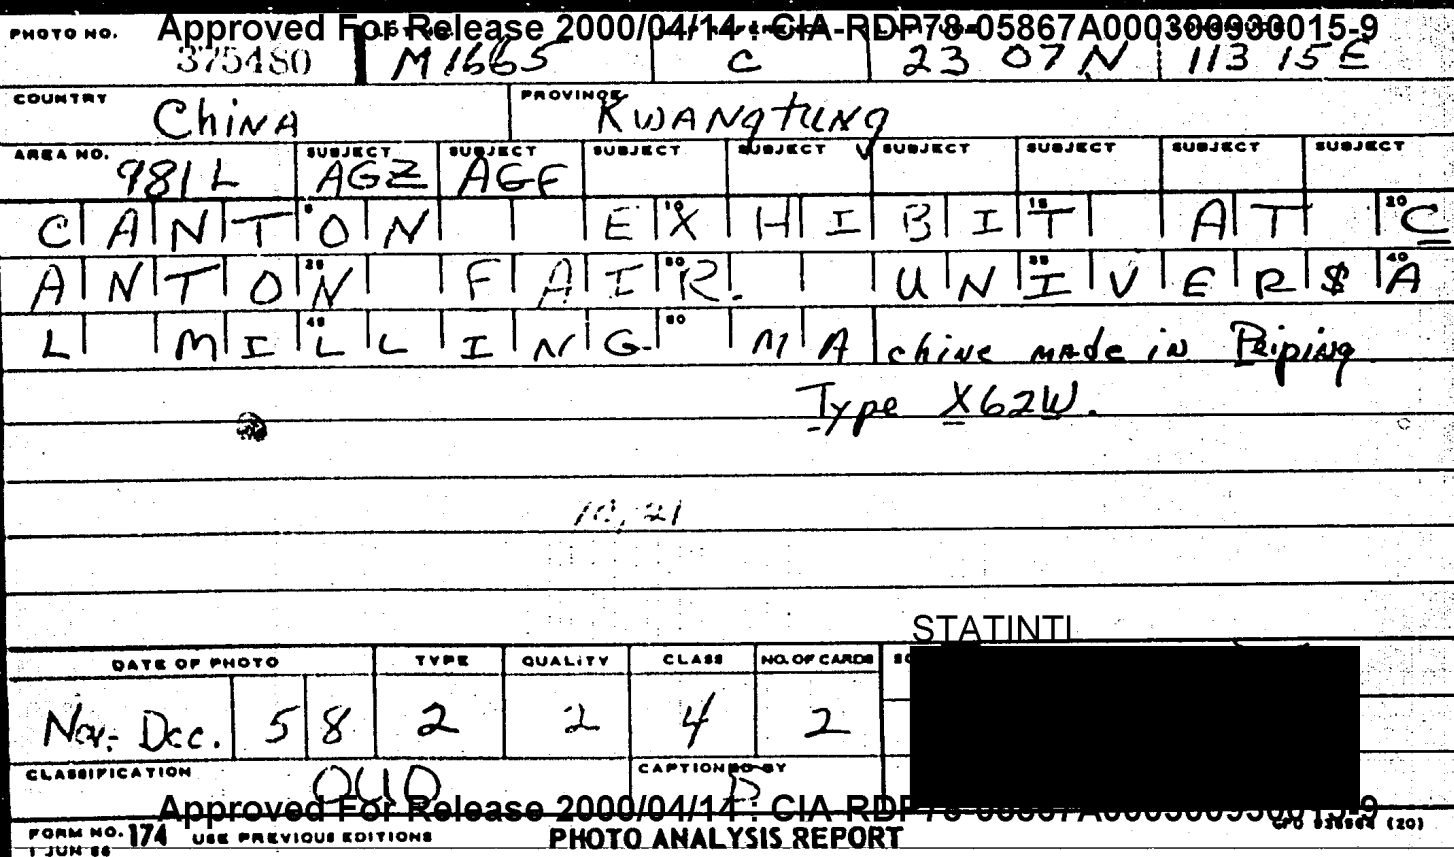 Approved For Release 2000/04/14 : CIA-RDP78-05867A000300930015-9
PHOTO NO.
375480 M1665 C 23 07 N 113 15 E
COUNTRY PROVINCE
China Kwangtung
AREA NO. SUBJECT SUBJECT SUBJECT SUBJECT SUBJECT SUBJECT SUBJECT SUBJECT
981L AGZ AGF
CANTON EXHIBIT AT C
ANTON FAIR. UNIVER$A
L MILLING MAchine made in Peiping
Type X62W.
10, 21
STATINTL
DATE OF PHOTO TYPE QUALITY CLASS NO. OF CARDS
Nov.- Dec. 58 2 2 4 2
CLASSIFICATION CAPTIONED BY
OUO
Approved For Release 2000/04/14 : CIA-RDP78-05867A000300930015-9
FORM NO. 174 USE PREVIOUS EDITIONS PHOTO ANALYSIS REPORT (20)
1 JUN